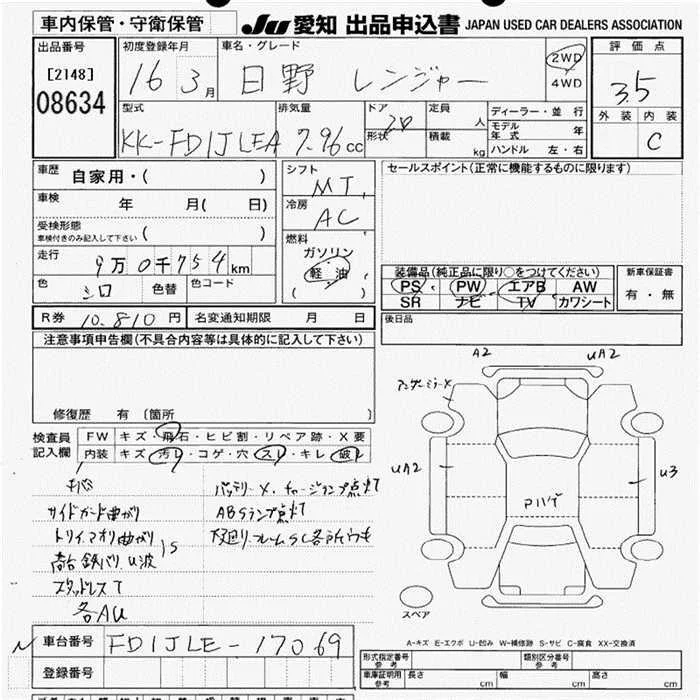 車内保管・守衛保管
JU 愛知 出品申込書 JAPAN USED CAR DEALERS ASSOCIATION
出品番号
[2148]
08634
初度登録年月
16 3月
車名・グレード
日野 レンジャー
2WD
4WD
評価点
3.5
外装 内装
C
型式
KK-FD1JLEA
排気量
7.96cc
ドア
2D
形状
定員
人
積載
kg
ディーラー・並行
モデル年式 年
ハンドル 左・右
車歴
自家用・( )
車検
年 月( 日)
受検形態
車検付きのみ記入して下さい ( )
走行
9万0千754km
色
シロ
色替
色コード
シフト
MT
冷房
AC
燃料
ガソリン
軽油
( )
セールスポイント(正常に機能するものに限ります)
装備品(純正品に限り○をつけてください)
PS PW エアB AW
SR ナビ TV カワシート
新車保証書
有・無
R券 10.810円 名変通知期限 月 日
後日品
注意事項申告欄(不具合内容等は具体的に記入して下さい)
修復歴 有 [箇所 ]
検査員記入欄
FW キズ・飛石・ヒビ割・リペア跡・X要
内装 キズ・汚レ・コゲ・穴・スレ・キレ・破レ
サイドガード曲がり
バッテリーX、チャージランプ点灯
ABSランプ点灯
アオリ曲がり
スタッドレスT
各AU
A2
UA2
アンダーミラーX
UA2
U3
Pハゲ
スペア
A-キズ E-エクボ U-凹み W-補修跡 S-サビ C-腐食 XX-交換済
車台番号 FD1JLE-17069
登録番号
形式指定番号
参考
類別区分番号
参考
車庫証明用
参考
長さ cm 幅 cm 高さ cm